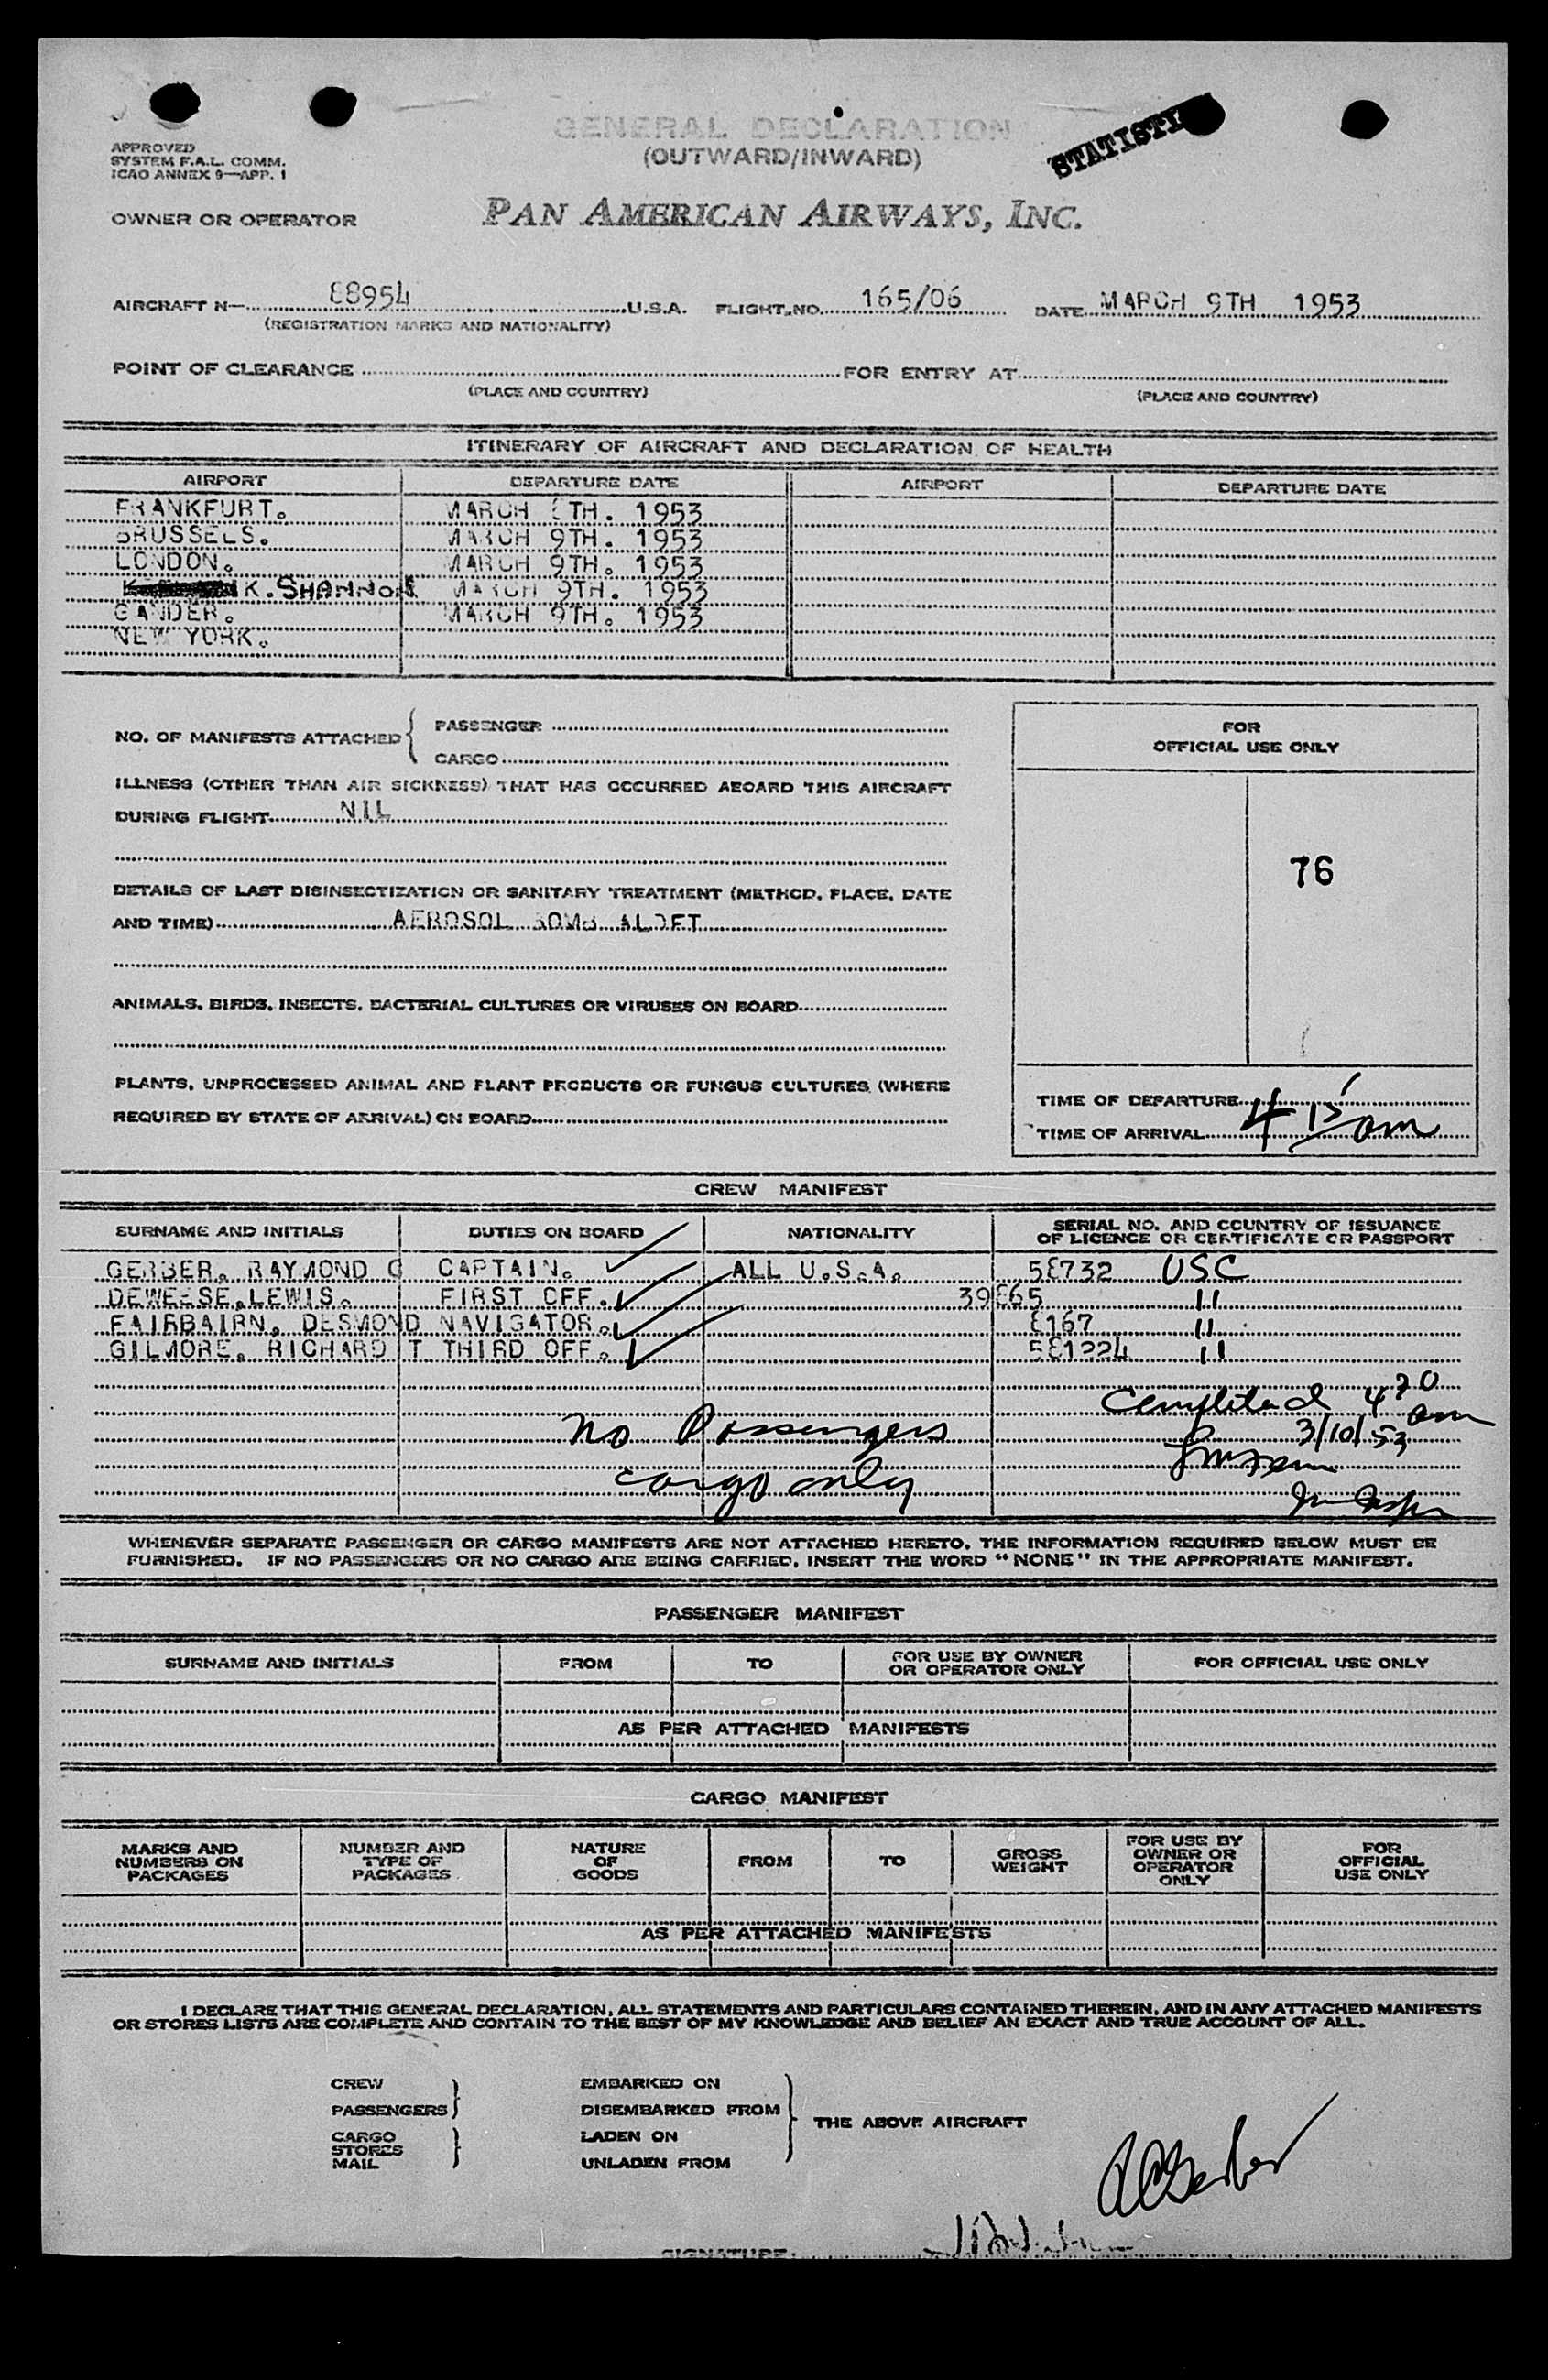 GENERAL DECLARATION
(OUTWARD/INWARD)
APPROVED
SYSTEM F.A.L. COMM.
ICAO ANNEX 9—APP. 1
OWNER OR OPERATOR PAN AMERICAN AIRWAYS, INC.
AIRCRAFT N— 88954 U.S.A. FLIGHT NO. 165/06 DATE MARCH 9TH 1953
(REGISTRATION MARKS AND NATIONALITY)
POINT OF CLEARANCE FOR ENTRY AT
(PLACE AND COUNTRY) (PLACE AND COUNTRY)
ITINERARY OF AIRCRAFT AND DECLARATION OF HEALTH
AIRPORT DEPARTURE DATE AIRPORT DEPARTURE DATE
FRANKFURT. MARCH TH. 1953
BRUSSELS. MARCH 9TH. 1953
LONDON. MARCH 9TH. 1953
K. SHANNON MARCH 9TH. 1953
GANDER. MARCH 9TH. 1953
NEW YORK.
NO. OF MANIFESTS ATTACHED { PASSENGER
CARGO
FOR
OFFICIAL USE ONLY
ILLNESS (OTHER THAN AIR SICKNESS) THAT HAS OCCURRED ABOARD THIS AIRCRAFT
DURING FLIGHT NIL
76
DETAILS OF LAST DISINSECTIZATION OR SANITARY TREATMENT (METHOD, PLACE, DATE
AND TIME) AEROSOL BOMB ALOFT
ANIMALS, BIRDS, INSECTS, BACTERIAL CULTURES OR VIRUSES ON BOARD
PLANTS, UNPROCESSED ANIMAL AND PLANT PRODUCTS OR FUNGUS CULTURES (WHERE
REQUIRED BY STATE OF ARRIVAL) ON BOARD
TIME OF DEPARTURE
TIME OF ARRIVAL 4 15 am
CREW MANIFEST
SURNAME AND INITIALS DUTIES ON BOARD NATIONALITY SERIAL NO. AND COUNTRY OF ISSUANCE
OF LICENCE OR CERTIFICATE OR PASSPORT
GERBER. RAYMOND C CAPTAIN. ALL U.S.A. 58732 USC
DEWEESE.LEWIS. FIRST OFF. 39865 "
FAIRBAIRN. DESMOND NAVIGATOR. 8167 "
GILMORE. RICHARD T THIRD OFF. 581224 "
Completed 4 20 am
No Passengers 3/10/53
cargo only
WHENEVER SEPARATE PASSENGER OR CARGO MANIFESTS ARE NOT ATTACHED HERETO, THE INFORMATION REQUIRED BELOW MUST BE
FURNISHED. IF NO PASSENGERS OR NO CARGO ARE BEING CARRIED, INSERT THE WORD "NONE" IN THE APPROPRIATE MANIFEST.
PASSENGER MANIFEST
SURNAME AND INITIALS FROM TO FOR USE BY OWNER
OR OPERATOR ONLY FOR OFFICIAL USE ONLY
AS PER ATTACHED MANIFESTS
CARGO MANIFEST
MARKS AND
NUMBERS ON
PACKAGES NUMBER AND
TYPE OF
PACKAGES NATURE
OF
GOODS FROM TO GROSS
WEIGHT FOR USE BY
OWNER OR
OPERATOR
ONLY FOR
OFFICIAL
USE ONLY
AS PER ATTACHED MANIFESTS
I DECLARE THAT THIS GENERAL DECLARATION, ALL STATEMENTS AND PARTICULARS CONTAINED THEREIN, AND IN ANY ATTACHED MANIFESTS
OR STORES LISTS ARE COMPLETE AND CONTAIN TO THE BEST OF MY KNOWLEDGE AND BELIEF AN EXACT AND TRUE ACCOUNT OF ALL.
CREW EMBARKED ON
PASSENGERS DISEMBARKED FROM
THE ABOVE AIRCRAFT
CARGO LADEN ON
STORES
MAIL UNLADEN FROM
RCGerber
SIGNATURE: